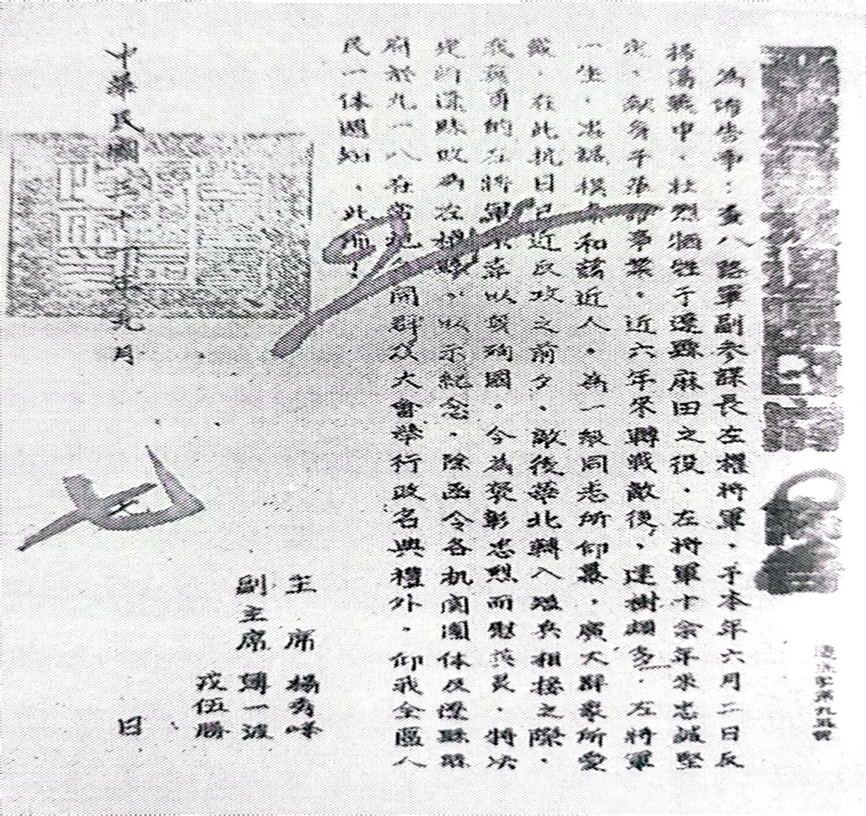 為佈告事：查八路軍副參謀長左權將軍，于本年六月二日反
掃蕩戰中，壯烈犧牲于遼縣麻田之役，左將軍十余年來忠誠堅
定，獻身于革命事業，近六年來轉戰敵後，建樹頗多，左將軍
一生，忠誠樸素和藹近人，為一級同志所仰慕，廣大群衆所愛
戴，在此抗日已近反攻之前夕，敵後華北轉入短兵相接之際，
我英勇的左將軍以身殉國，今為褒彰忠烈而慰英灵，將决
定所遼縣改為左權縣，以示紀念，除函令各机関團体及遼縣縣
府於九一八在當地召開群众大會舉行政名典禮外，仰我全區人
民一体週知，此佈！
主 席 楊秀峰
副主席 薄一波
戎伍勝
中華民國三十一年九月 日